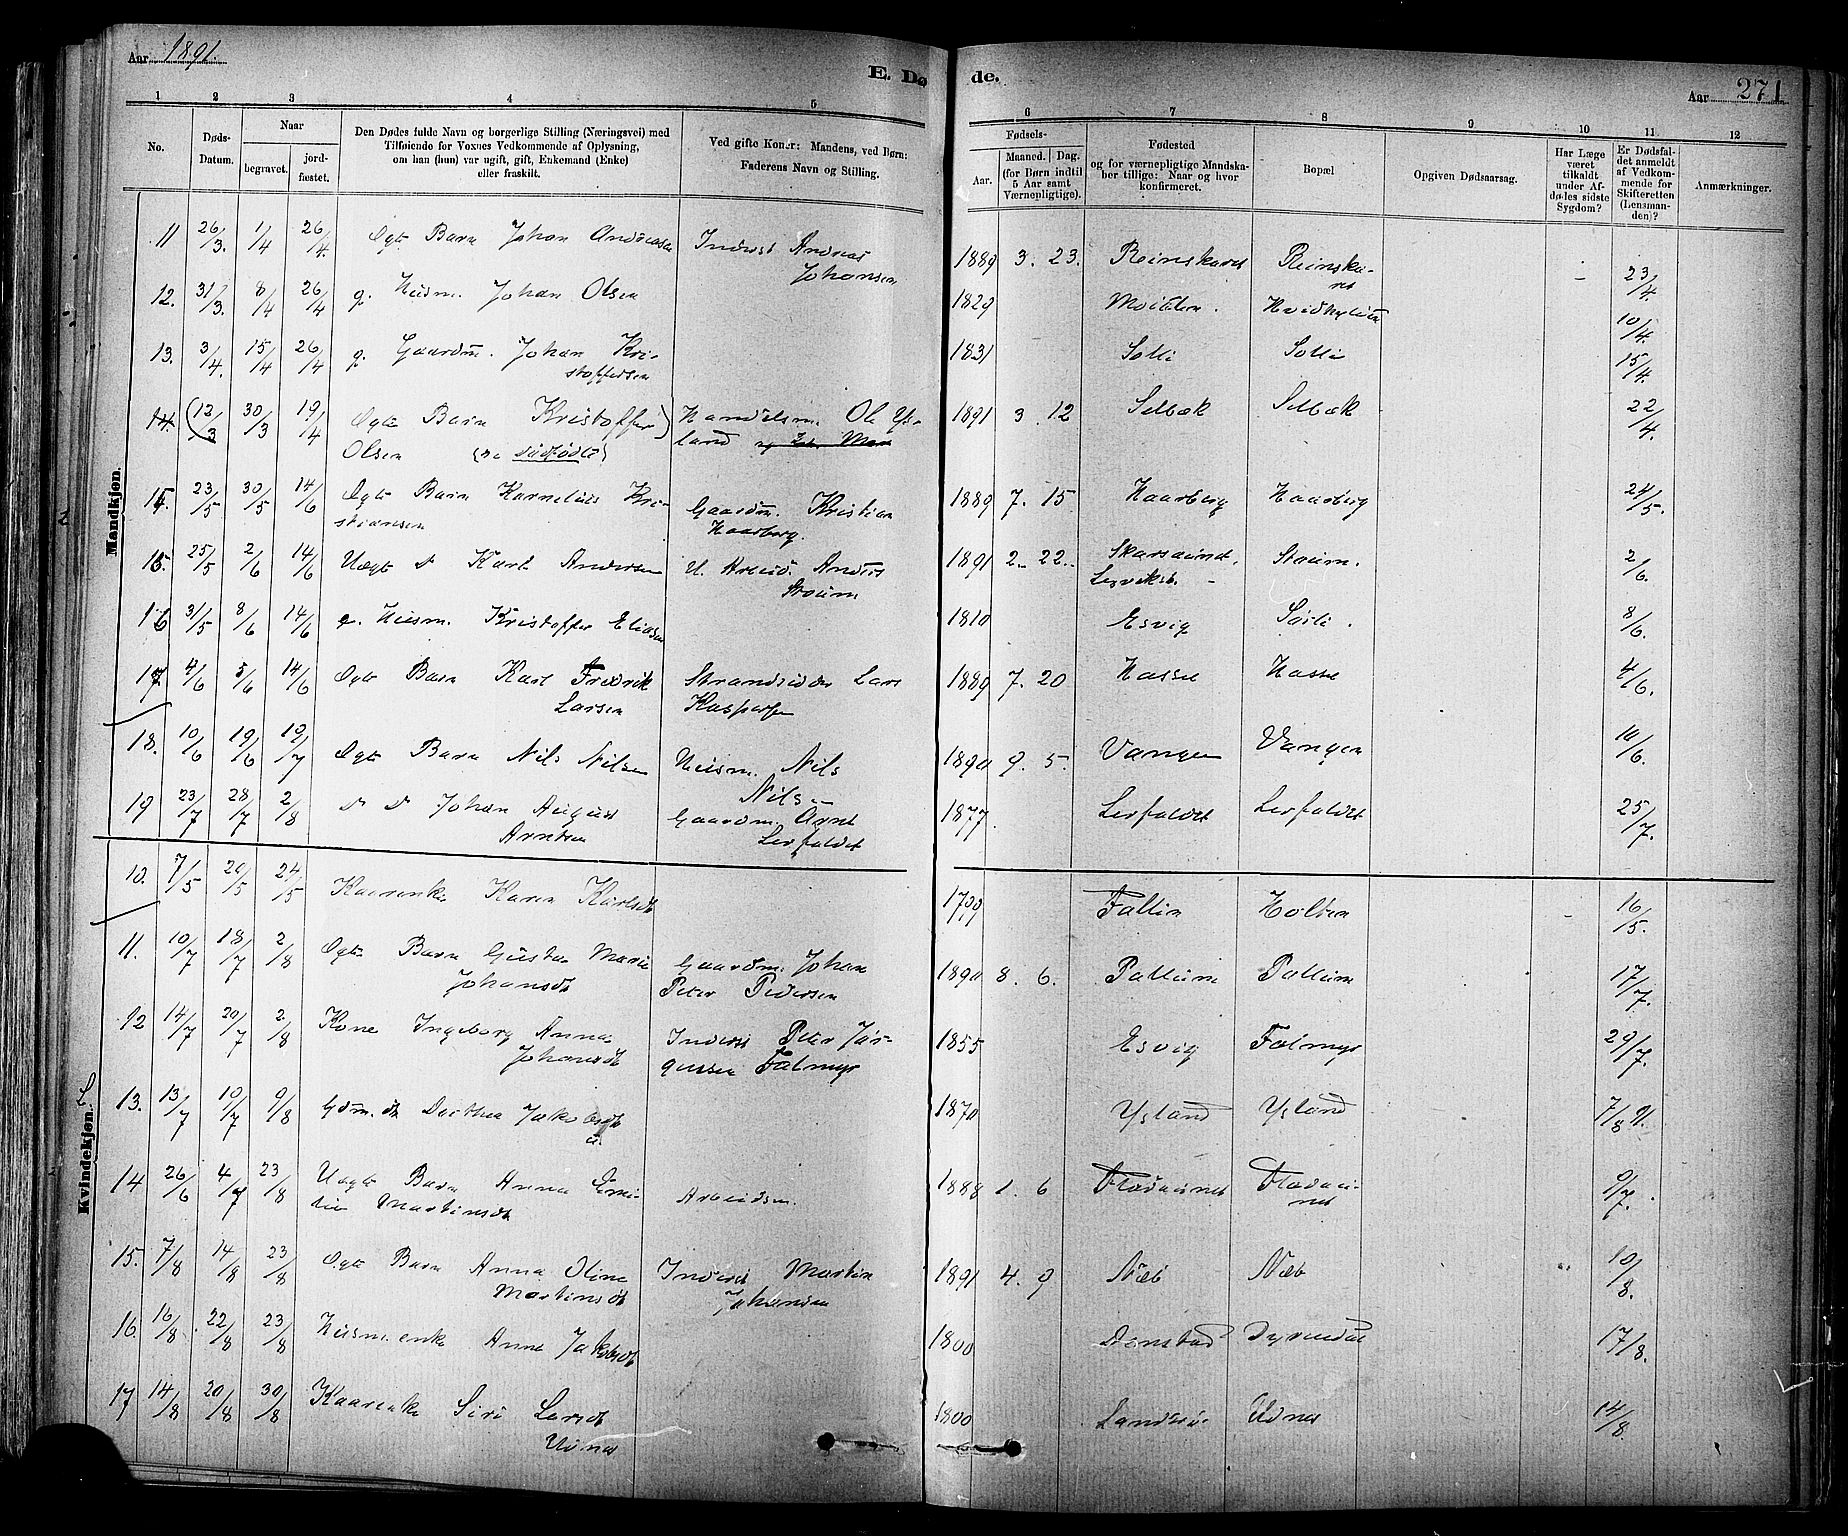 Aar 1891.
E. Dø
de.
Aar 271
1 2 3 4 5
6 7 8 9 10 11 12
No.
Døds-
Datum.
Naar
begravet.
jord-
fæstet.
Den Dødes fulde Navn og borgerlige Stilling (Næringsvei) med
Tilføiende for Voxnes Vedkommende af Oplysning,
om han (hun) var ugift, gift, Enkemand (Enke)
eller fraskilt.
Ved gifte Koner: Mandens, ved Børn:
Faderens Navn og Stilling.
Fødsels-
Aar.
Maaned. Dag.
(for Børn indtil
5 Aar samt
Værnepligtige).
Fødested
og for værnepligtige Mandska-
ber tillige: Naar og hvor
konfirmeret.
Bopæl
Opgiven Dødsaarsag.
Har Læge
været
tilkaldt
under Af-
dødes sidste
Sygdom?
Er Dødsfal-
det anmeldt
af Vedkom-
mende for
Skifteretten
(Lensman-
den)?
Anmærkninger.
Mandkjøn.
11 26/3. 1/4 26/4. Ægte Barn Johan Andreasen Inderst Andreas
Johansen 1889 3. 23. Reinskaret Reinska-
ret 23/4.
12. 31/3. 8/4 26/4 g. Husm. Johan Olsen 1829 10/4.
13. 3/4. 15/4 26/4 g. Gaardm. Johan Kri-
stoffersen 1831 Solli Solli 15/4.
14. (12/3 30/3 19/4 Ægte Barn Kristoffer) Handelsm. Ole Ys-
Olsen (se dødfødte) land 1891 3. 12 Selbæk Selbæk 22/4.
23/5 30/5 14/6 Ægte Barn Kornelius Kri-
stiansen Gaardm. Kristian
Haarberg. 1889 7. 15 Haarberg Haarberg 24/5.
15. 25/5 2/6 14/6 Uægte d Karl Andersen U. Arbeid. Anders
Straum 1891 2. 22. Skarsaunet, Straum. 2/6.
16 31/5 8/6 14/6 g. Husm. Kristoffer Eliasen 1810 Esvig Sørli. 8/6.
17 4/6 5/6 14/6 Ægte Barn Karl Fredrik Strandsidder Lars
Larsen Kaspersen 1889 7. 20 Hasse Hasse 4/6.
18. 10/6 19/6 19/7 Ægte Barn Nils Nilsen Husm. Nils
Nilsen 1890 9. 5. Vangen Vangen 10/6.
19 23/7 28/7 2/8 d d Johan August Gaardm. Arnt
Arntsen Lerfaldet 1877. Lerfaldet Lerfaldet 25/7.
Kvindekjøn.
10. 7/5 20/5 24/5 Kaarenke Karen Karlsdt 1799 Fallin Holten 16/5.
11. 10/7 18/7 2/8 Ægte Barn Gusta Marie Gaardm. Johan
Johansdt Peter Pedersen 1890 8. 6. Pallum Pallum 17/7.
12 14/7 20/7 2/8 Kone Ingeborg Anna Inderst Peter Jør-
Johansdt gensen Falmyr 1855 Esvig Falmyr 29/7.
13. 13/7 10/7 9/8 Gdm. dt Dorthea Jakobsdt 1870 Ysland Ysland 7/8 91.
14 26/6 4/7 23/8 Uægte Barn Anna
Martinsdt Arbeidsm. 1888 1. 6 Fladaunet Fladau-
net 9/7.
15. 7/8 14/8 23/8 Ægte Barn Anna Oline Inderst Martin
Martinsdt Johansen 1891 4. 9 Næb Næb 10/8.
16. 16/8 22/8 23/8 Husm. enke Anne Jakobsdt 1800 17/8.
17 14/8 20/8 30/8 Kaarenke Siri Larsdt
Udnes 1800 Udnes 14/8.